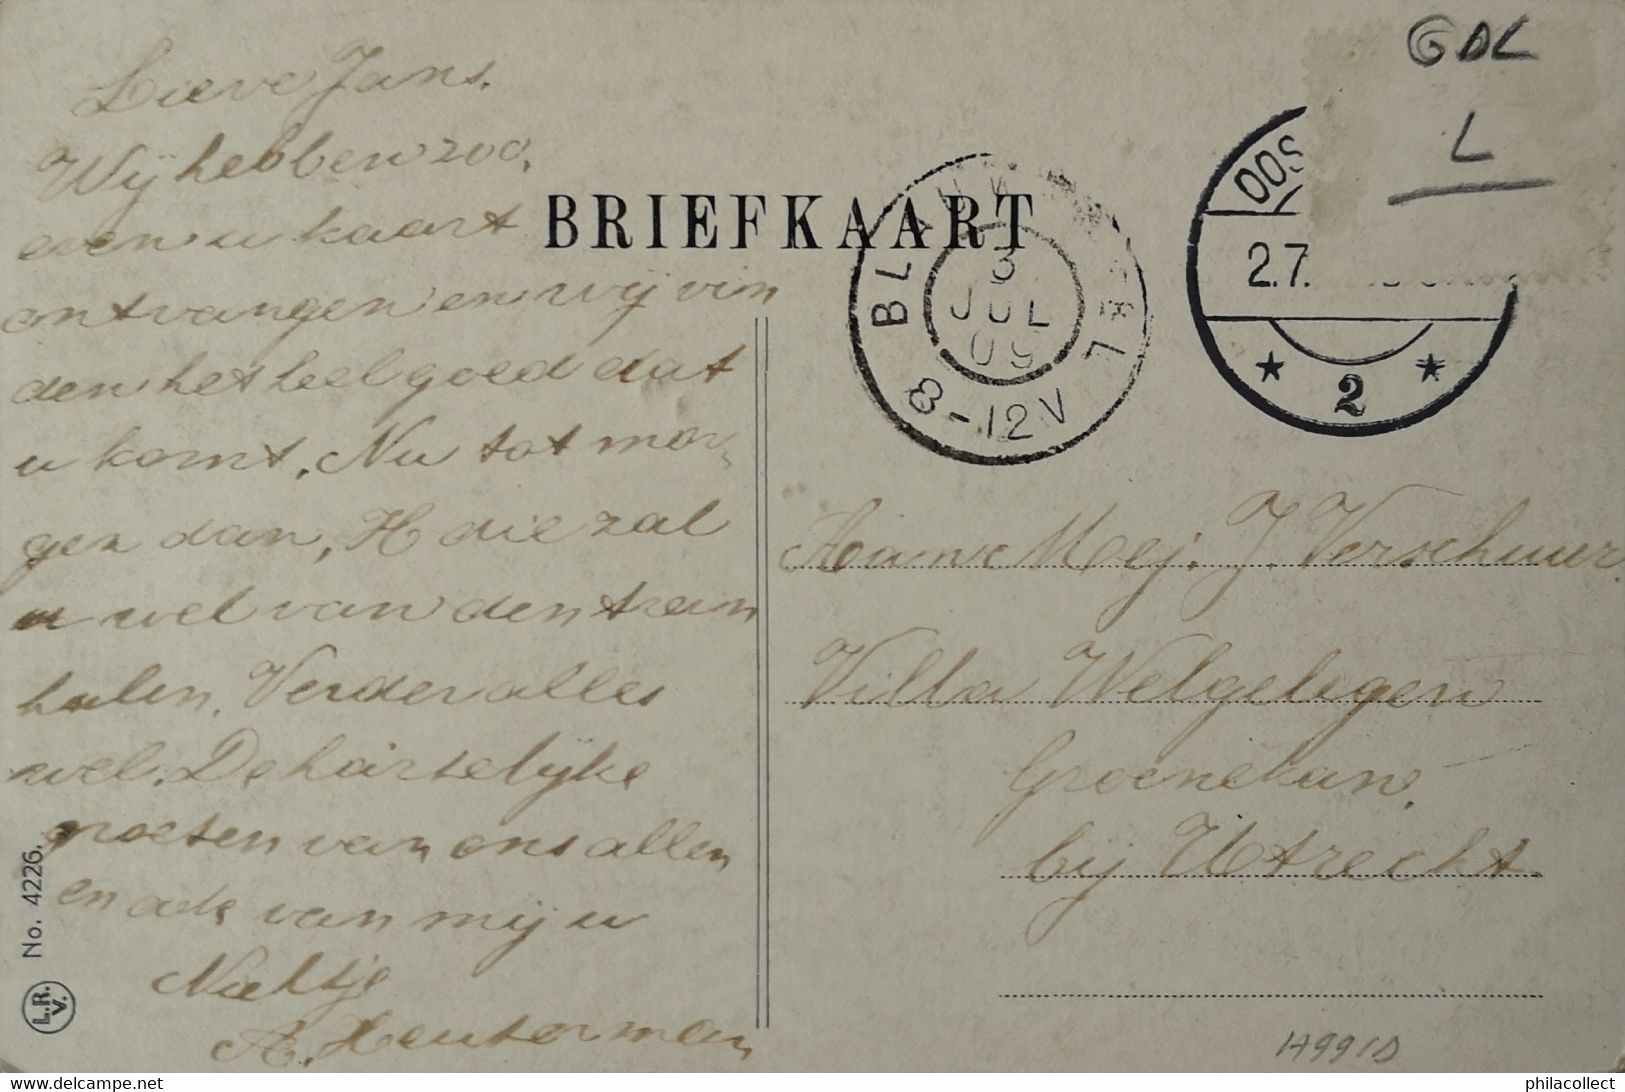 Lieve Jans.
Wij hebben zoo,
even u kaart
ontvangen en wij vin
den het heel goed dat
u komt. Nu tot mor,
gen dan, H die zal
u wel van den trein
halen. Verder alles
wel. De hartselijke
groeten van ons allen
en ook van mij u
A. Heuterman
BRIEFKAART
3
JUL
09
8-12V
GDL
L
OOS
2.7.
* 2 *
Aan Mej. J. Verschuur.
Villa Welgelegen
Groenekan.
bij Utrecht.
No. 4226.
L.R.
V.
philacollect